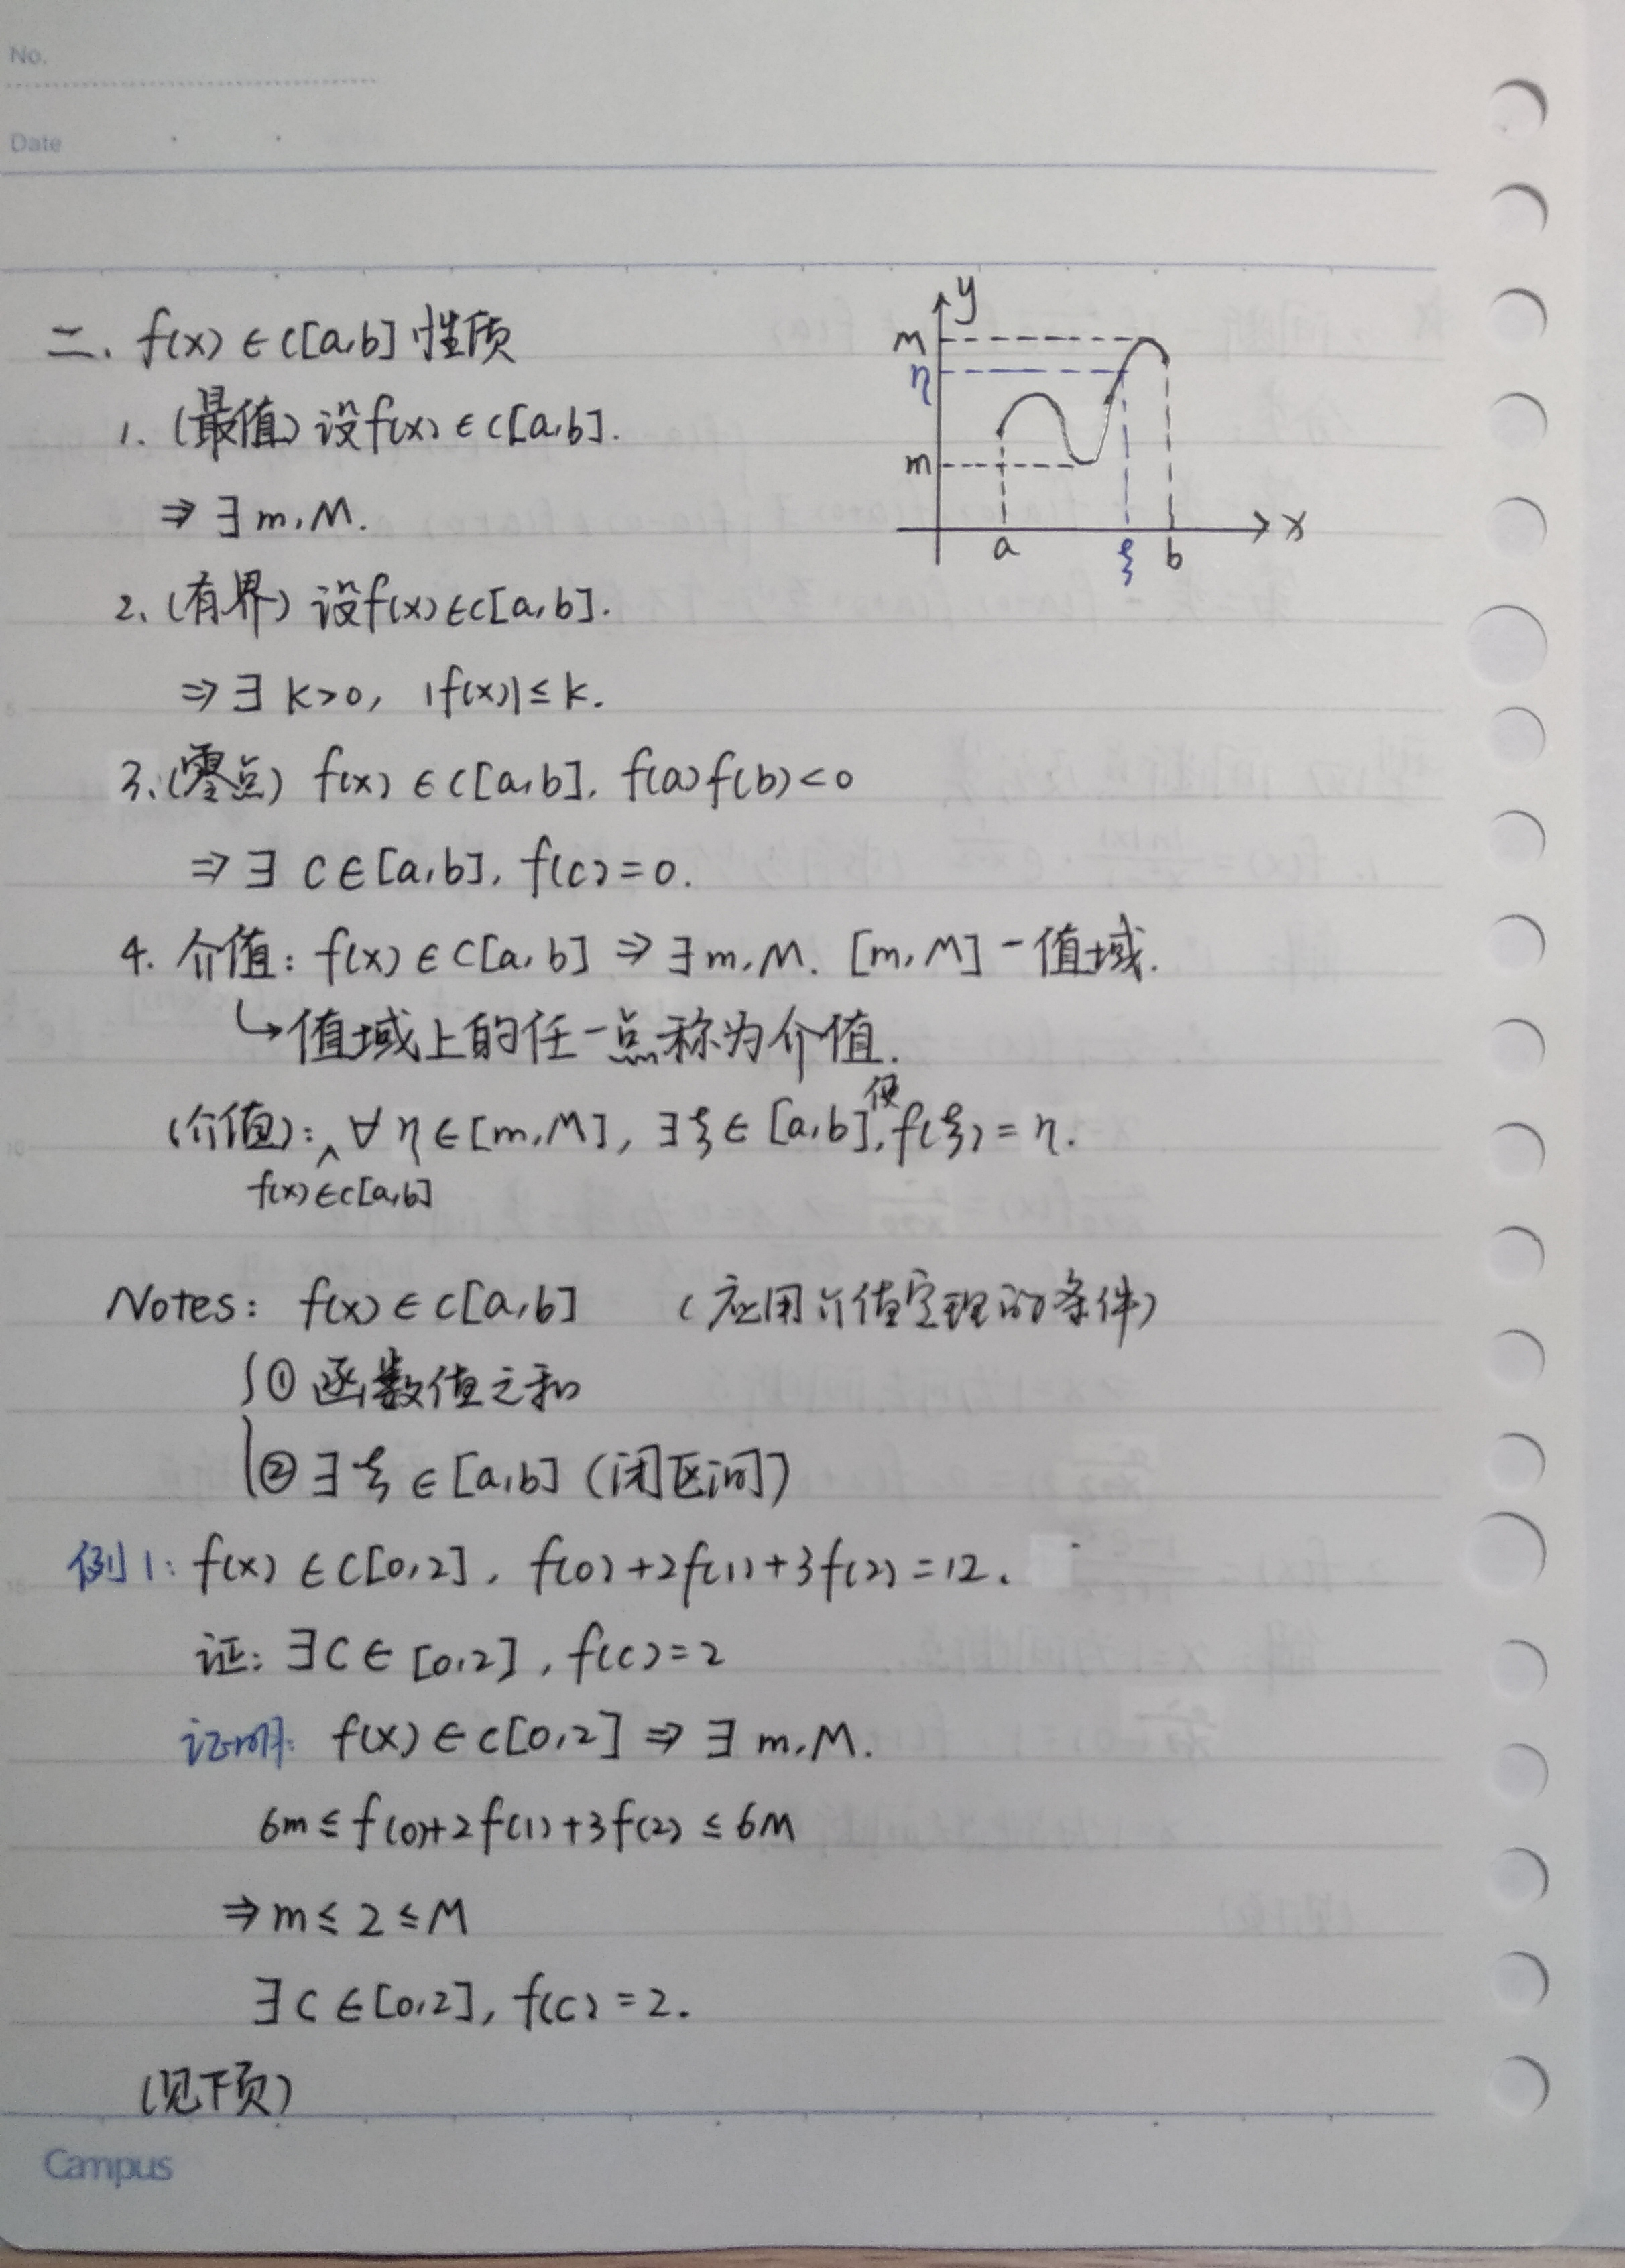 No.
Date
二. f(x) ∈ C[a,b] 性质
1. (最值) 设f(x) ∈ C[a,b].
⇒ ∃ m, M.
y
M
η
m
a ξ b
x
2. (有界) 设f(x) ∈ C[a,b].
⇒ ∃ k>0, |f(x)| ≤ k.
3. (零点) f(x) ∈ C[a,b], f(a)f(b)<0
⇒ ∃ C∈[a,b], f(c)=0.
4. 介值: f(x) ∈ C[a,b] ⇒ ∃ m, M. [m, M] - 值域.
↳ 值域上的任一点称为介值.
(介值): ∧ ∀ η∈[m,M], ∃ξ∈[a,b], 使 f(ξ) = η.
f(x)∈C[a,b]
Notes: f(x) ∈ C[a,b] (应用介值定理的条件)
① 函数值之和
② ∃ ξ ∈ [a,b] (闭区间)
例1: f(x) ∈ C[0,2], f(0)+2f(1)+3f(2)=12.
证: ∃C∈[0,2], f(c)=2
证明: f(x) ∈ C[0,2] ⇒ ∃ m, M.
6m ≤ f(0)+2f(1)+3f(2) ≤ 6M
⇒ m ≤ 2 ≤ M
∃ C ∈[0,2], f(c) = 2.
(见下页)
Campus